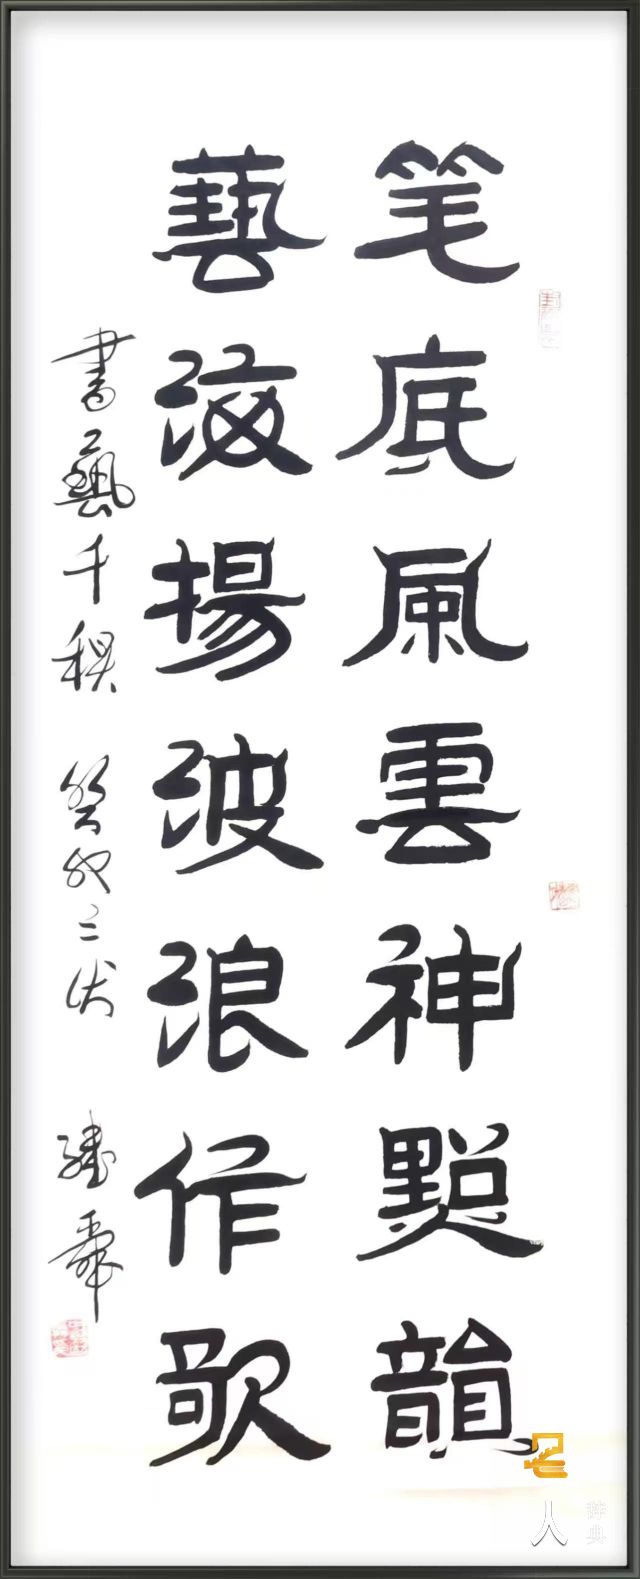 笔底風雲神點韻
藝海揚波浪作歌
書藝千秋 癸卯三伏 舜
名人辞典